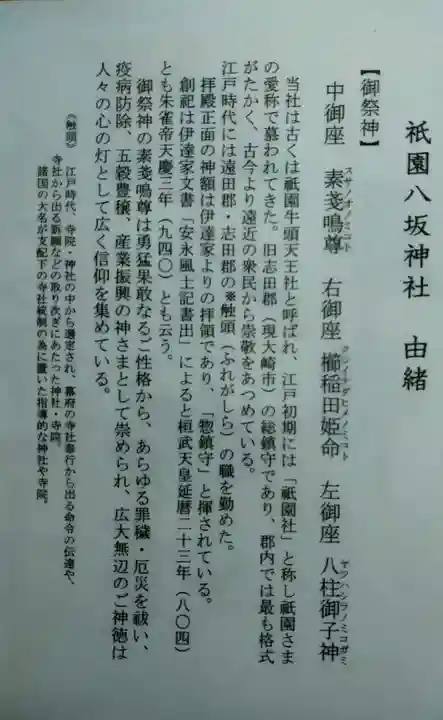 祇園八坂神社 由緒
【御祭神】
中御座 素戔嗚尊 右御座 櫛稲田姫命 左御座 八柱御子神
スサノオノミコト クシイナダヒメノミコト ヤハシラノミコガミ
当社は古くは祇園牛頭天王社と呼ばれ、江戸初期には「祇園社」と称し祇園さま
の愛称で慕われてきた。旧志田郡(現大崎市)の総鎮守であり、郡内では最も格式
がたかく、古今より遠近の衆民から崇敬をあつめている。
江戸時代には遠田郡・志田郡の※触頭(ふれがしら)の職を勤めた。
拝殿正面の神額は伊達家よりの拝領であり、「惣鎮守」と揮されている。
創祀は伊達家文書「安永風土記書出」によると桓武天皇延暦二十三年(八〇四)
とも朱雀帝天慶三年(九四〇)とも云う。
御祭神の素戔嗚尊は勇猛果敢なるご性格から、あらゆる罪穢・厄災を祓い、
疫病防除、五穀豊穣、産業振興の神さまとして崇められ、広大無辺のご神徳は
人々の心の灯として広く信仰を集めている。
《触頭》 江戸時代、寺院・神社の中から選定され、幕府の寺社奉行から出る命令の伝達や、
寺社から出る訴願などの取り次ぎにあたった神社・寺院。
諸国の大名が支配下の寺社統制の為に置いた指導的な神社や寺院。